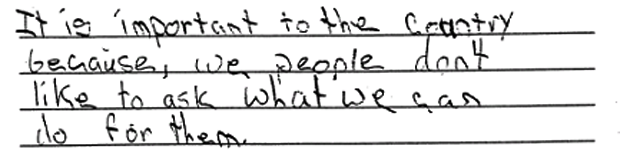 It is important to the Countrty
because, we people don't
like to ask what we can
do for them.